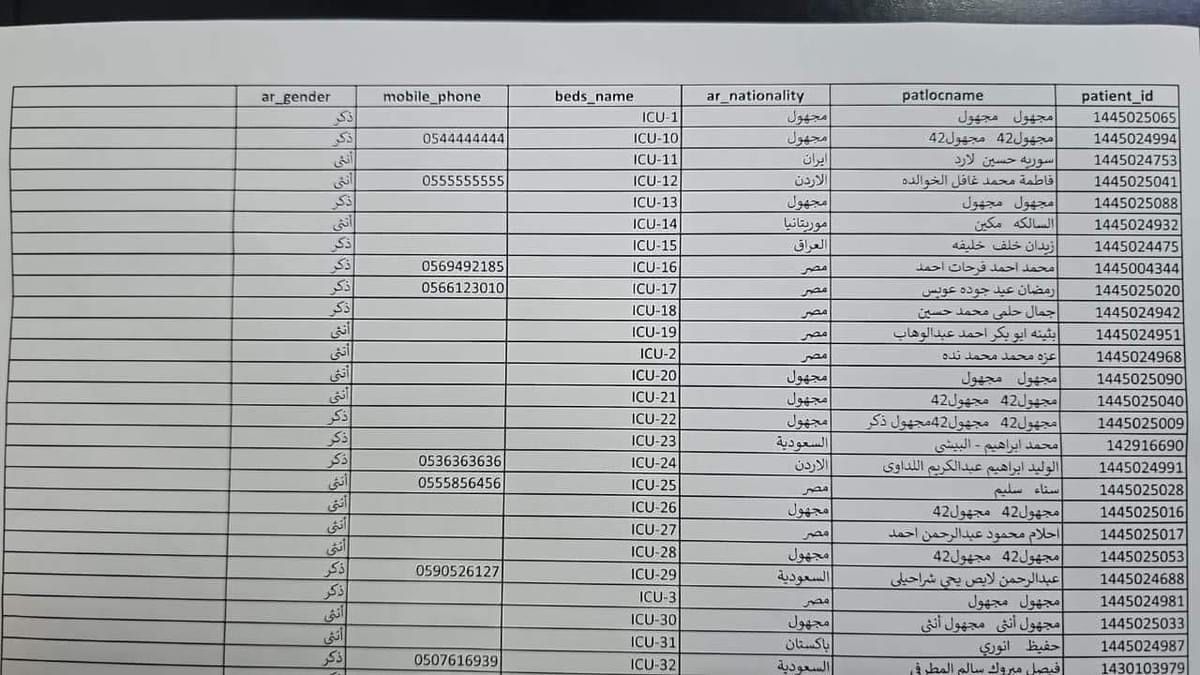 patient_id patlocname ar_nationality beds_name mobile_phone ar_gender
1445025065 مجهول مجهول مجهول ICU-1 ذكر
1445024994 مجهول42 مجهول42 مجهول ICU-10 0544444444 ذكر
1445024753 سوريه حسين لارد ايران ICU-11 أنثى
1445025041 فاطمة محمد غافل الخوالده الاردن ICU-12 0555555555 أنثى
1445025088 مجهول مجهول مجهول ICU-13 ذكر
1445024932 السالكه مكين موريتانيا ICU-14 أنثى
1445024475 زيدان خلف خليفه العراق ICU-15 ذكر
1445004344 محمد احمد فرحات احمد مصر ICU-16 0569492185 ذكر
1445025020 رمضان عيد جوده عويس مصر ICU-17 0566123010 ذكر
1445024942 جمال حلمى محمد حسين مصر ICU-18 ذكر
1445024951 بثينه ابو بكر احمد عبدالوهاب مصر ICU-19 أنثى
1445024968 عزه محمد محمد نده مصر ICU-2 أنثى
1445025090 مجهول مجهول مجهول ICU-20 أنثى
1445025040 مجهول42 مجهول42 مجهول ICU-21 أنثى
1445025009 مجهول42 مجهول42مجهول ذكر مجهول ICU-22 ذكر
142916690 محمد ابراهيم - البيشي السعودية ICU-23 ذكر
1445024991 الوليد ابراهيم عبدالكريم اللداوى الاردن ICU-24 0536363636 ذكر
1445025028 سناء سليم مصر ICU-25 0555856456 أنثى
1445025016 مجهول42 مجهول42 مجهول ICU-26 أنثى
1445025017 احلام محمود عبدالرحمن احمد مصر ICU-27 أنثى
1445025053 مجهول42 مجهول42 مجهول ICU-28 أنثى
1445024688 عبدالرحمن لايص يحي شراحيلى السعودية ICU-29 0590526127 ذكر
1445024981 مجهول مجهول مصر ICU-3 ذكر
1445025033 مجهول أنثى مجهول أنثى مجهول ICU-30 أنثى
1445024987 حفيظ انوري باكستان ICU-31 أنثى
1430103979 فيصل مبروك سالم المطرفى السعودية ICU-32 0507616939 ذكر